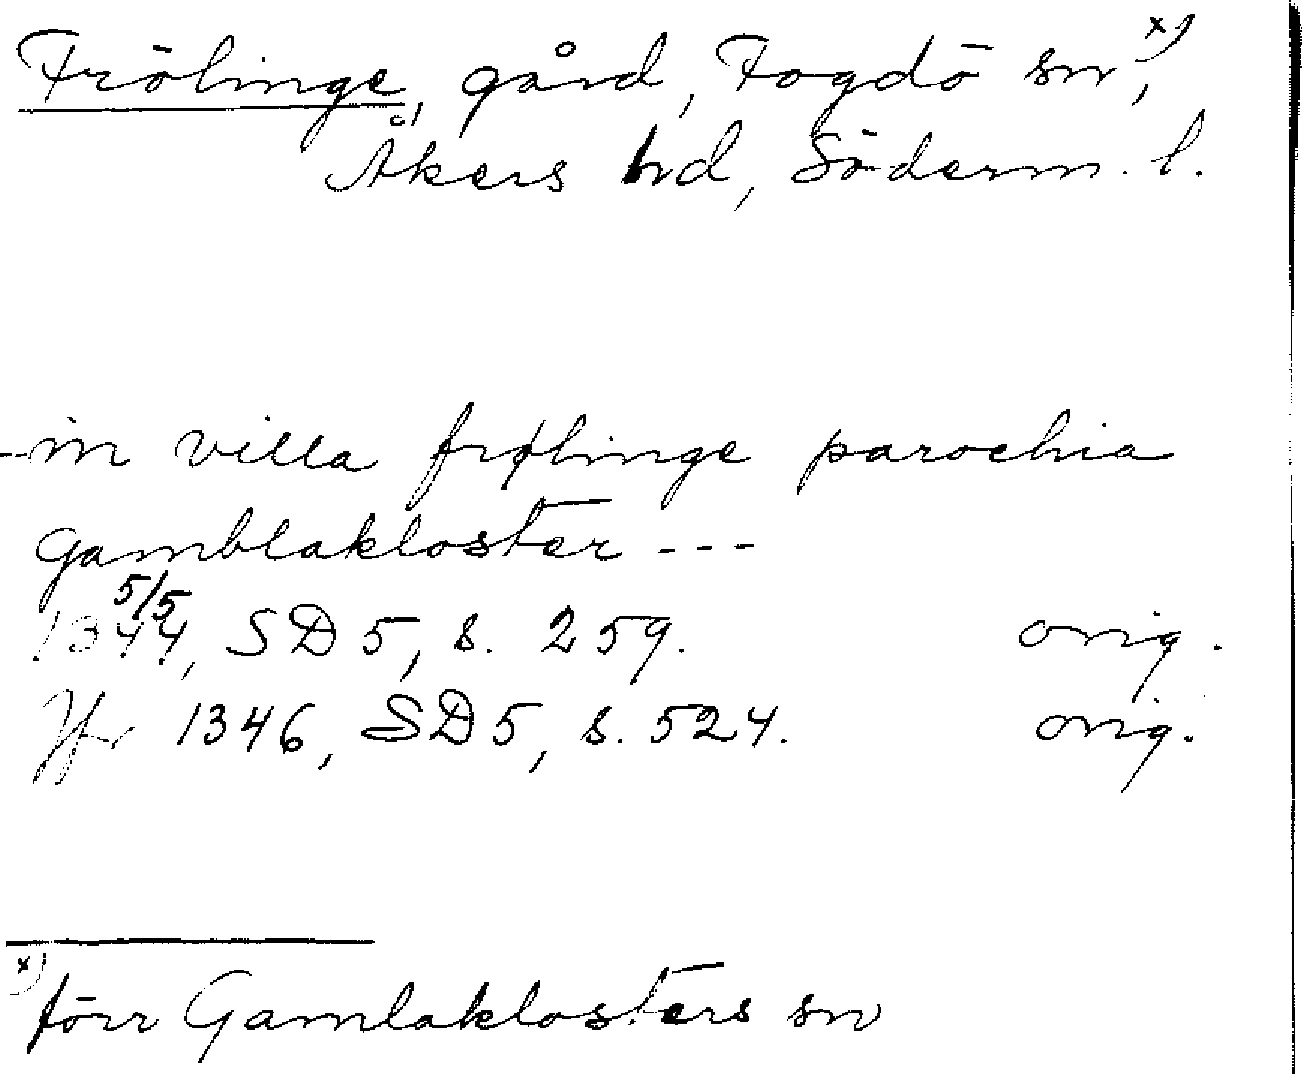 Frölinge, gård, Fogdö sn x),
Åkers hd, Söderm. l.
- in villa frølinge parochia
gamblakloster ---
1344 5/5, SD 5, s. 259. orig.
Jfr 1346, SD 5, s. 524. orig.
x) förr Gamlaklosters sn